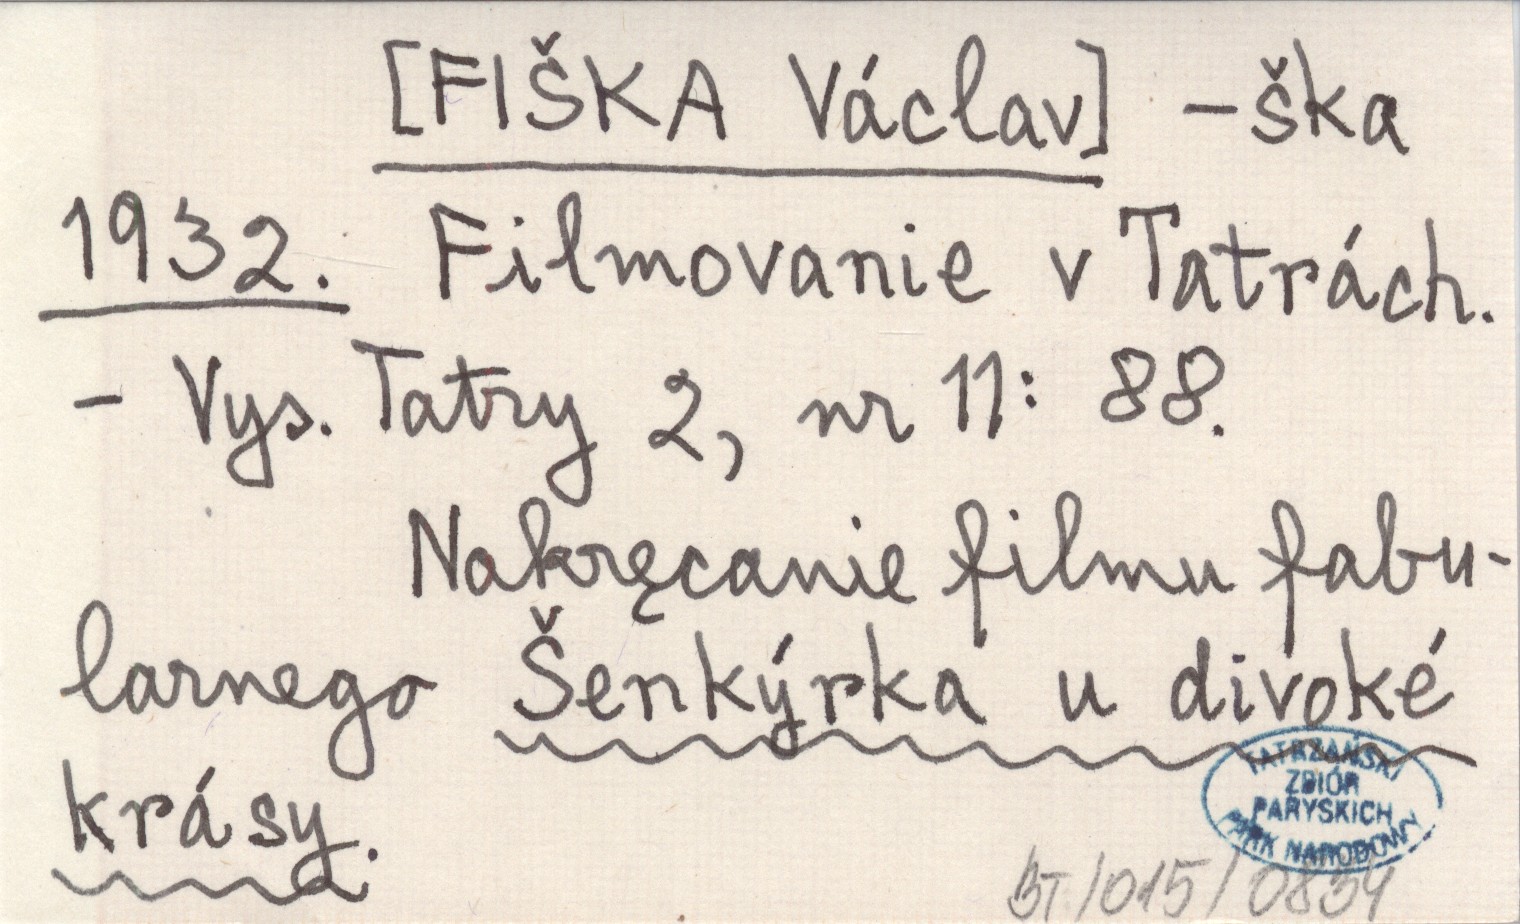 [FIŠKA Václav] -ška
1932. Filmovanie v Tatrách.
- Vys. Tatry 2, nr 11: 88.
Nakręcanie filmu fabu-
larnego Šenkýrka u divoké
krásy.
TATRZAŃSKI
ZBIÓR
PARYSKICH
PARK NARODOWY
BT/015/0834